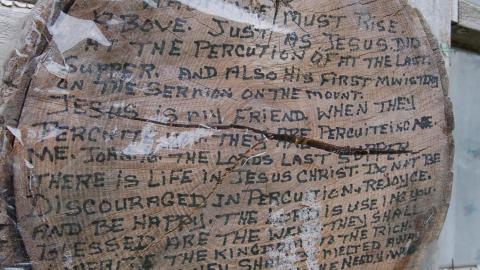 MUST RISE.
ABOVE. JUST AS JESUS DID
AT THE PERCUTION OF AT THE LAST
SUPPER. AND ALSO HIS FIRST MINISTERY
ON THE SERMON ON THE MOUNT.
JESUS IS MY FRIEND WHEN THEY
ARE PERCUITEING ME
ME. JOHN 16. THE LORDS LAST SUPPER
THERE IS LIFE IN JESUS CHRIST. DON'T BE
DISCOURAGED IN PERCUTION. REJOYCE.
AND BE HAPPY. THE IS USEING YOU.
BLESSED ARE THE THEY SHALL
THE KINGDOM TO THE RICH.
THEY MELTED AWAY
THE NEEDY.